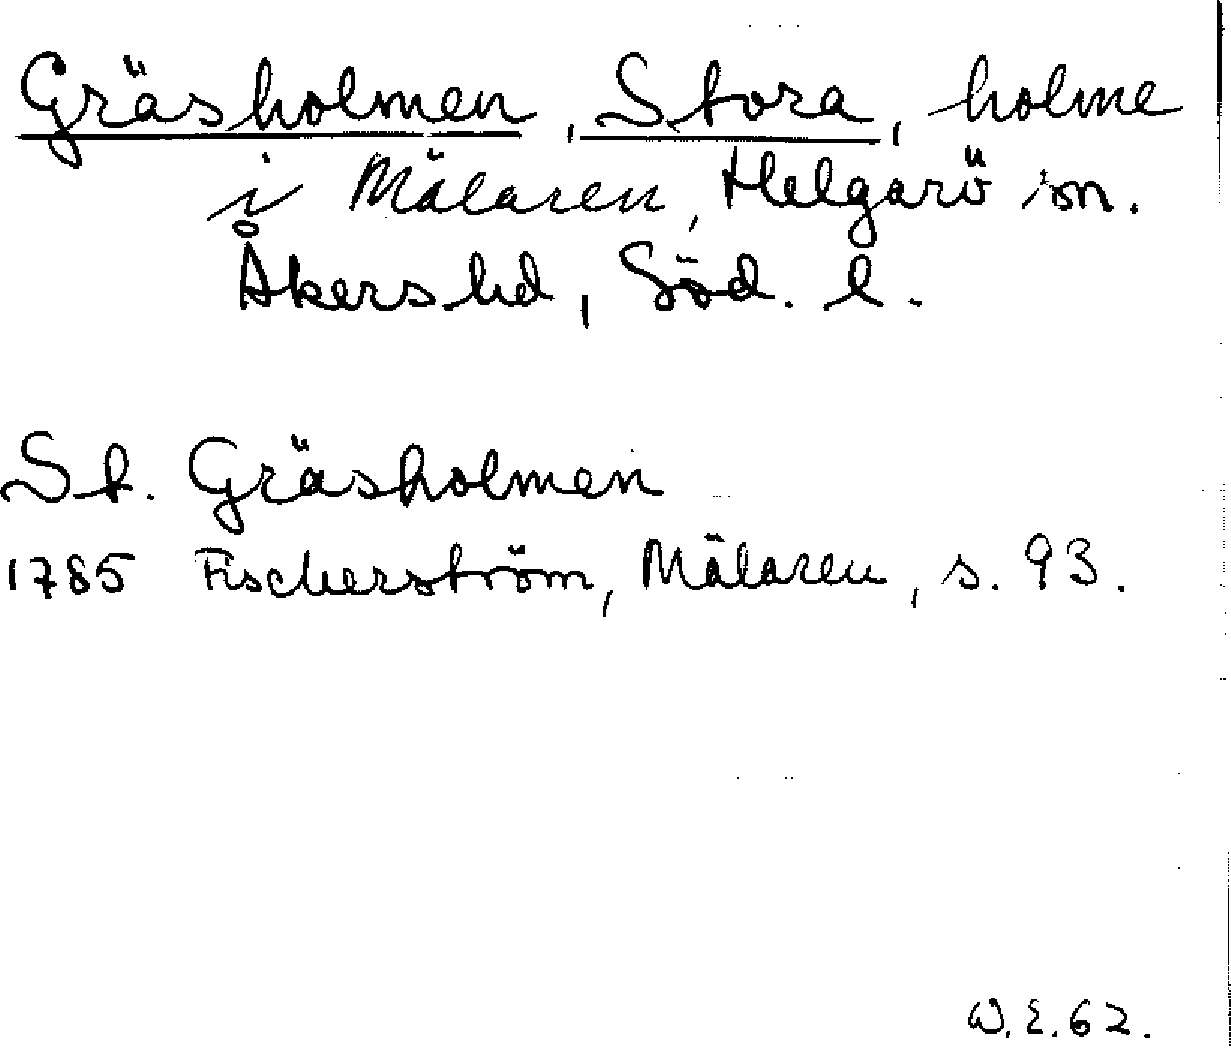 Gräsholmen, Stora, holme
i Mälaren, Helgarö sn.
Åkers hd, Söd. l.
St. Gräsholmen
1785 Fischerström, Mälaren, s. 93.
W.E.62.